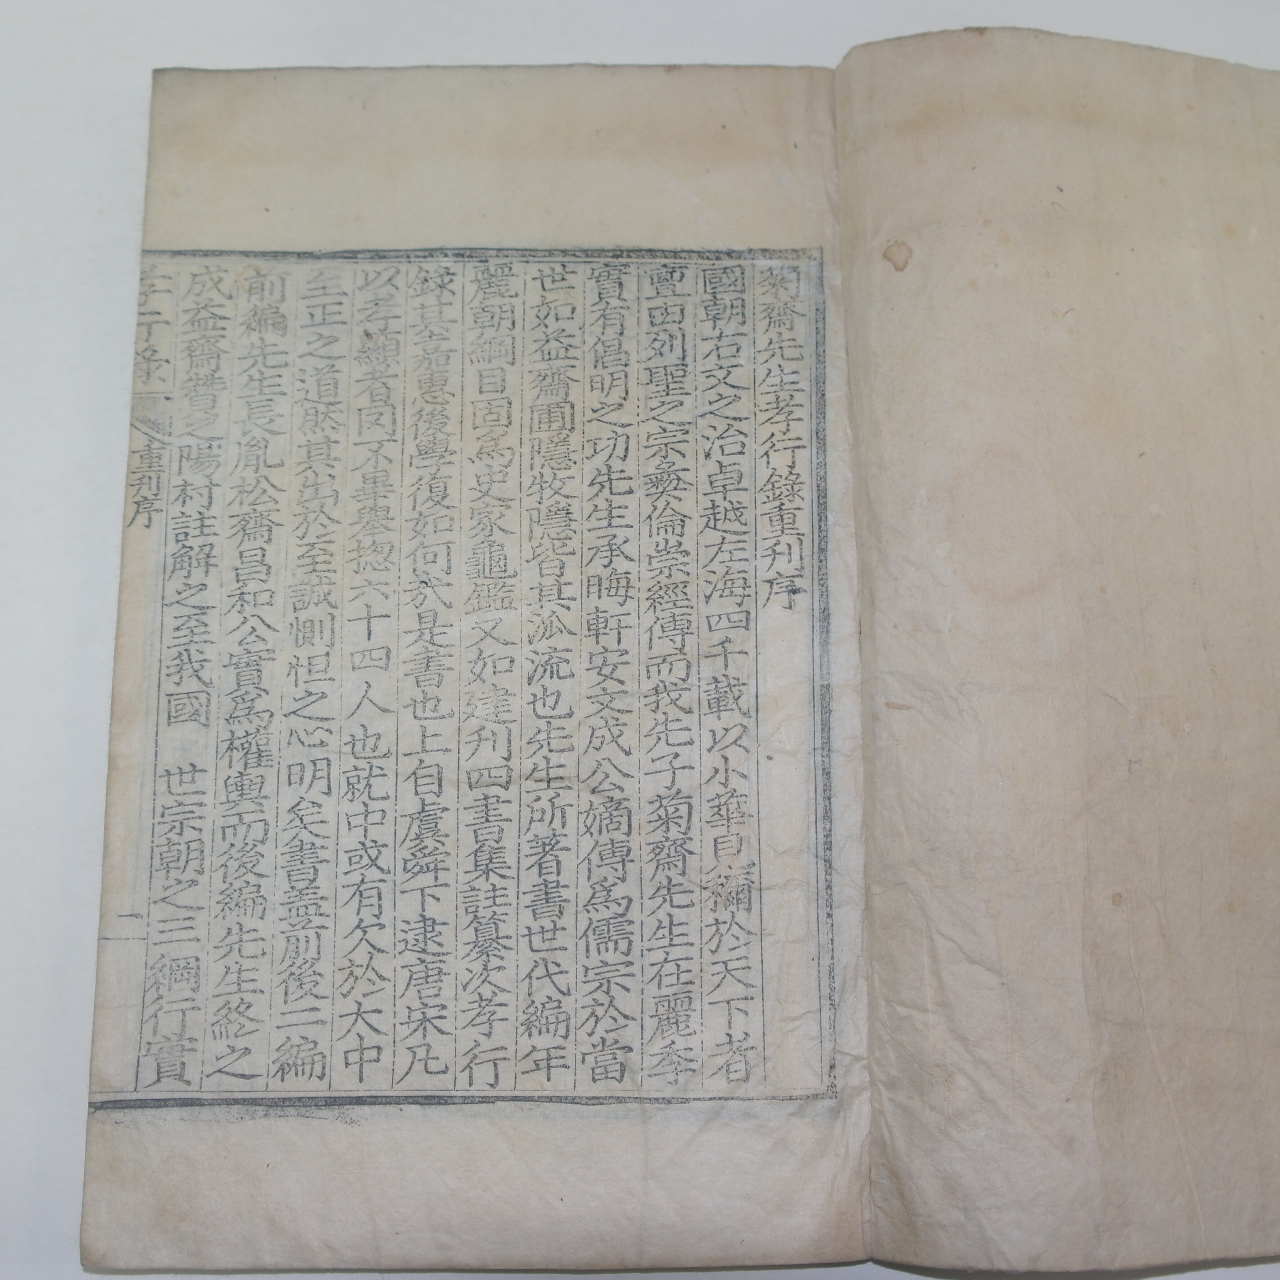 菊齋先生孝行錄重刋序
國朝右文之治卓越左海四千載以小華見稱於天下者
亶由列聖之宗彜倫崇經傳而我先子菊齋先生在麗季
實有倡明之功先生承晦軒安文成公嫡傳爲儒宗於當
世如益齋圃隱牧隱皆其派流也先生所著書世代編年
麗朝綱目固爲史家龜鑑又如建刋四書集註纂次孝行
錄其嘉惠後學復如何哉是書也上自虞舜下逮唐宋凡
以孝顯者罔不畢擧揔六十四人也就中或有欠於大中
至正之道然其出於至誠惻怛之心明矣書盖前後二編
前編先生長胤松齋昌和公實爲權輿而後編先生終之
成益齋贊之陽村註解之至我國 世宗朝之三綱行實
孝行錄 重刋序 一